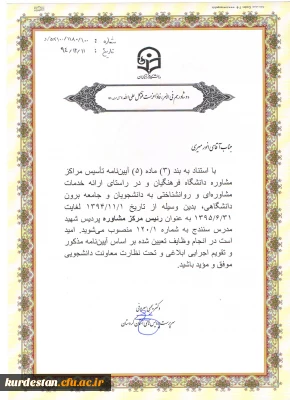 شماره : ۵۷۱۰۰/۱۱۸۰/۱۰۰/د
تاریخ : ۹۴/۱۲/۱۱
و شاورهم فی الامر فاذا عزمت فتوکل علی الله
جناب آقای انور میری
با استناد به بند (۳) ماده (۵) آیین‌نامه تأسیس مراکز
مشاوره دانشگاه فرهنگیان و در راستای ارائه خدمات
مشاوره‌ای و روانشناختی به دانشجویان و جامعه برون
دانشگاهی، بدین وسیله از تاریخ ۱۳۹۴/۱۱/۱ لغایت
۱۳۹۵/۶/۳۱ به عنوان رئیس مرکز مشاوره پردیس شهید
مدرس سنندج به شماره ۱۲۰/۱ منصوب می‌شوید. امید
است در انجام وظایف تعیین شده بر اساس آیین‌نامه مذکور
و تقویم اجرایی ابلاغی و تحت نظارت معاونت دانشجویی
موفق و مؤید باشید.
kurdestan.cfu.ac.ir